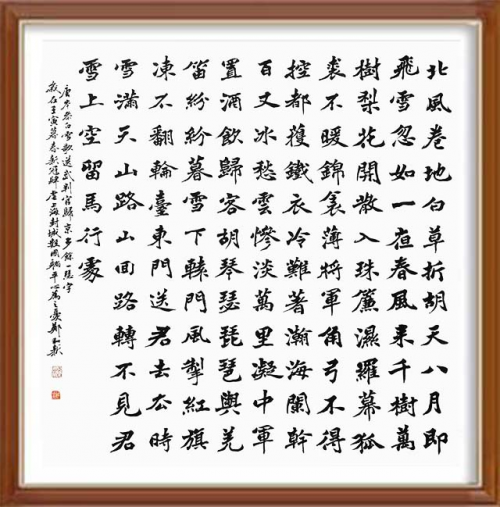 北風卷地白草折胡天八月即
飛雪忽如一夜春風來千樹萬
樹梨花開散入珠簾濕羅幕狐
裘不暖錦衾薄將軍角弓不得
控都護鐵衣冷難著瀚海闌幹
百丈冰愁雲慘淡萬里凝中軍
置酒飲歸客胡琴瑟琵琶與羌
笛紛紛暮雪下轅門風掣紅旗
凍不翻輪臺東門送君去去時
雪滿天山路山回路轉不見君
雪上空留馬行處
唐岑參白雪歌送武判官歸京多餘一瑟字
歲在壬寅暮春新冠肆虐上海封城